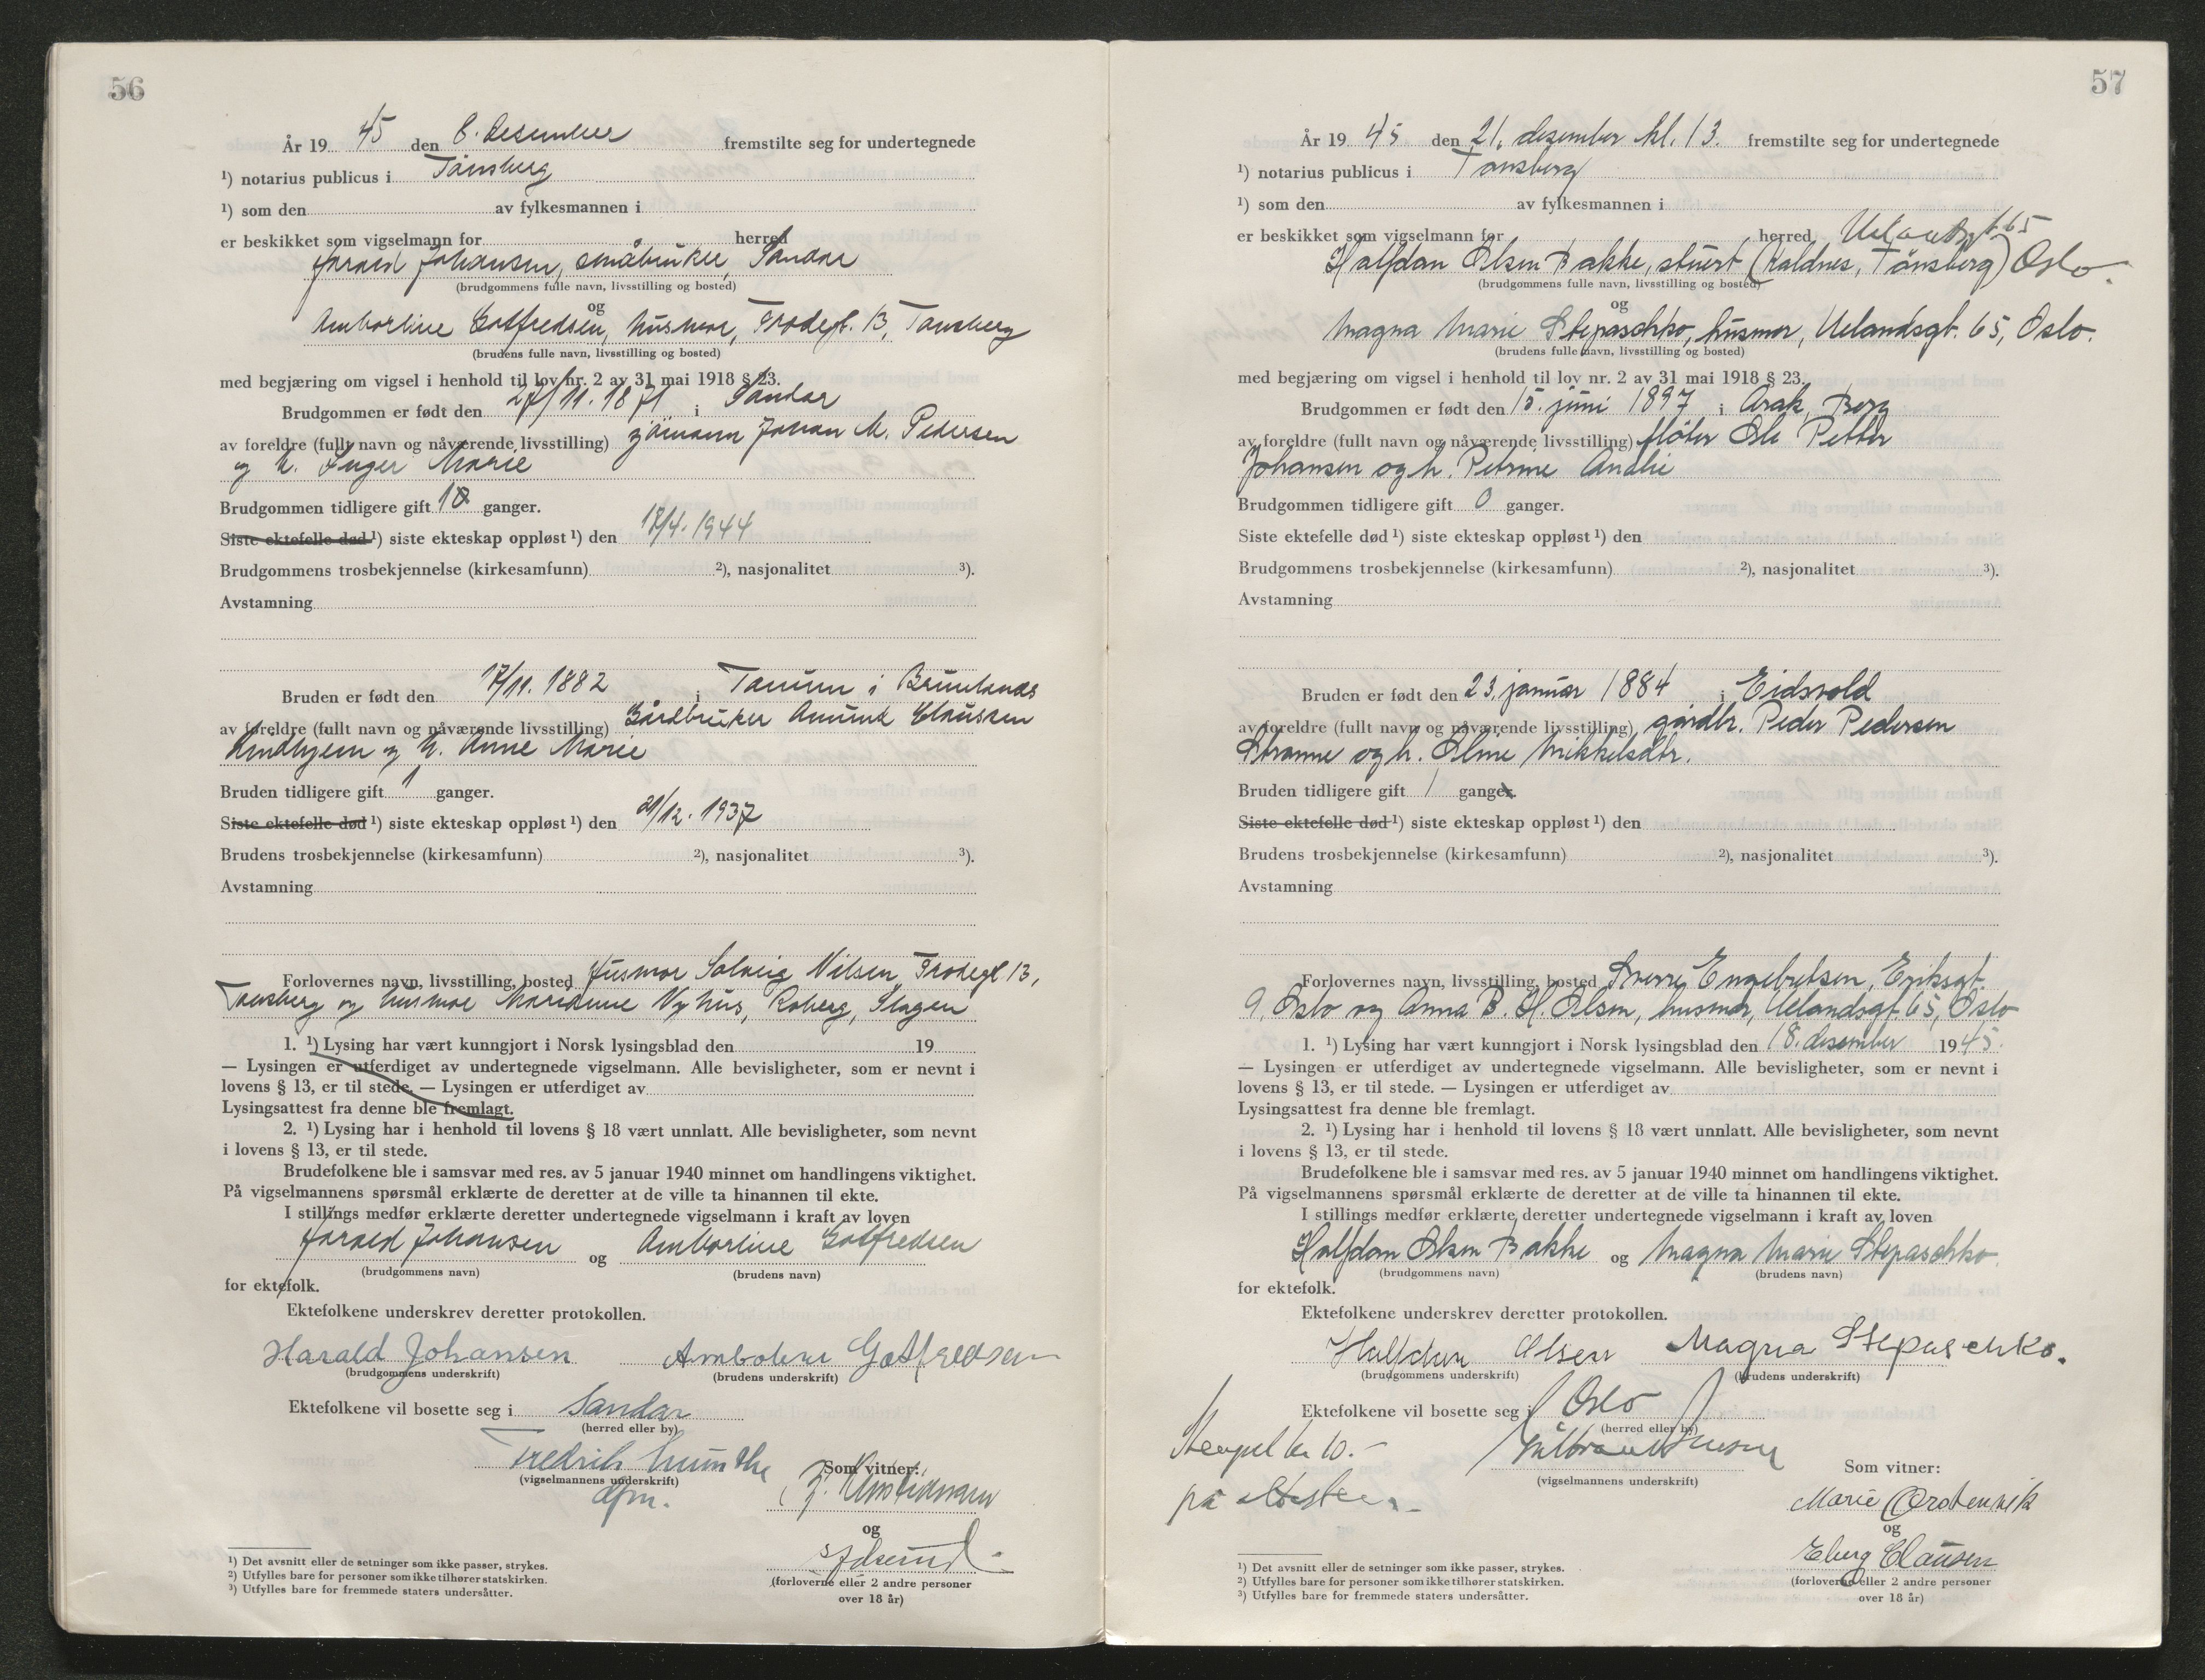 56
År 1945 den 8. desember fremstilte seg for undertegnede
¹) notarius publicus i Tønsberg
¹) som den av fylkesmannen i
er beskikket som vigselmann for herred
Harald Johansen, småbruker, Sandar
(brudgommens fulle navn, livsstilling og bosted)
og
Amborline Gotfredsen, husmor, Frodegt. 13, Tønsberg
(brudens fulle navn, livsstilling og bosted)
med begjæring om vigsel i henhold til lov nr. 2 av 31 mai 1918 § 23.
Brudgommen er født den 27/11. 1871 i Sandar
av foreldre (fullt navn og nåværende livsstilling) sjømann Johan M. Pedersen
og h. Inger Marie
Brudgommen tidligere gift 1 ganger.
Siste ektefelle død ¹) siste ekteskap oppløst ¹) den 17/4. 1944
Brudgommens trosbekjennelse (kirkesamfunn) ²), nasjonalitet ³).
Avstamning
Bruden er født den 17/11. 1882 i Tanum i Brunlanes
av foreldre (fullt navn og nåværende livsstilling) Gårdbruker Amund Clausen
Lindhjem og h. Anne Marie
Bruden tidligere gift 1 ganger.
Siste ektefelle død ¹) siste ekteskap oppløst ¹) den 21/12. 1937
Brudens trosbekjennelse (kirkesamfunn) ²), nasjonalitet ³).
Avstamning
Forlovernes navn, livsstilling, bosted Husmor Solveig Nilsen, Frodegt. 13,
Tønsberg og husmor Marianne Nyhus, Roberg, Slagen
1. ¹) Lysing har vært kunngjort i Norsk lysingsblad den 19
— Lysingen er utferdiget av undertegnede vigselmann. Alle bevisligheter, som er nevnt i
lovens § 13, er til stede. — Lysingen er utferdiget av
Lysingsattest fra denne ble fremlagt.
2. ¹) Lysing har i henhold til lovens § 18 vært unnlatt. Alle bevisligheter, som nevnt
i lovens § 13, er til stede.
Brudefolkene ble i samsvar med res. av 5 januar 1940 minnet om handlingens viktighet.
På vigselmannens spørsmål erklærte de deretter at de ville ta hinannen til ekte.
I stillings medfør erklærte deretter undertegnede vigselmann i kraft av loven
Harald Johansen og Amborline Gotfredsen
(brudgommens navn) (brudens navn)
for ektefolk.
Ektefolkene underskrev deretter protokollen.
Harald Johansen Gotfredsen
(brudgommens underskrift) (brudens underskrift)
Ektefolkene vil bosette seg i Sandar
(herred eller by)
Fredrik Munthe
(vigselmannens underskrift)
dfm.
Som vitner:
og
(forloverne eller 2 andre personer
over 18 år)
¹) Det avsnitt eller de setninger som ikke passer, strykes.
²) Utfylles bare for personer som ikke tilhører statskirken.
³) Utfylles bare for fremmede staters undersåtter.
57
År 1945 den 21. desember kl. 13. fremstilte seg for undertegnede
¹) notarius publicus i Tønsberg
¹) som den av fylkesmannen i
er beskikket som vigselmann for herred Uelandsgt 65
Halfdan Olsen Bakke, stuert (Kaldnes, Tønsberg) Oslo.
(brudgommens fulle navn, livsstilling og bosted)
og
Magna Marie Stepaschko, husmor, Uelandsgt. 65, Oslo.
(brudens fulle navn, livsstilling og bosted)
med begjæring om vigsel i henhold til lov nr. 2 av 31 mai 1918 § 23.
Brudgommen er født den 15. juni 1897 i Arak, Berg
av foreldre (fullt navn og nåværende livsstilling) fløter Ole Petter
Johansen og h. Petrine Andlie
Brudgommen tidligere gift 0 ganger.
Siste ektefelle død ¹) siste ekteskap oppløst ¹) den
Brudgommens trosbekjennelse (kirkesamfunn) ²), nasjonalitet ³).
Avstamning
Bruden er født den 23. januar 1884 i Eidsvold
av foreldre (fullt navn og nåværende livsstilling) gårdbr. Peder Pedersen
Stranne og h. Oline Mikkelsdtr.
Bruden tidligere gift 1 ganger.
Siste ektefelle død ¹) siste ekteskap oppløst ¹) den
Brudens trosbekjennelse (kirkesamfunn) ²), nasjonalitet ³).
Avstamning
Forlovernes navn, livsstilling, bosted Sverre Engebretsen, Eriksgt.
9, Oslo og Anna B. H. Olsen, husmor, Uelandsgt. 65, Oslo
1. ¹) Lysing har vært kunngjort i Norsk lysingsblad den 18. desember 1945.
— Lysingen er utferdiget av undertegnede vigselmann. Alle bevisligheter, som er nevnt i
lovens § 13, er til stede. — Lysingen er utferdiget av
Lysingsattest fra denne ble fremlagt.
2. ¹) Lysing har i henhold til lovens § 18 vært unnlatt. Alle bevisligheter, som nevnt
i lovens § 13, er til stede.
Brudefolkene ble i samsvar med res. av 5 januar 1940 minnet om handlingens viktighet.
På vigselmannens spørsmål erklærte de deretter at de ville ta hinannen til ekte.
I stillings medfør erklærte deretter undertegnede vigselmann i kraft av loven
Halfdan Olsen Bakke og Magna Marie Stepaschko
(brudgommens navn) (brudens navn)
for ektefolk.
Ektefolkene underskrev deretter protokollen.
Halfdan Olsen Magna Stepaschko.
(brudgommens underskrift) (brudens underskrift)
Ektefolkene vil bosette seg i Oslo
(herred eller by)
Stempel kr 10.-
på attesten.
(vigselmannens underskrift)
Som vitner:
Marie Orstenvik
og
Eberg Clausen
(forloverne eller 2 andre personer
over 18 år)
¹) Det avsnitt eller de setninger som ikke passer, strykes.
²) Utfylles bare for personer som ikke tilhører statskirken.
³) Utfylles bare for fremmede staters undersåtter.